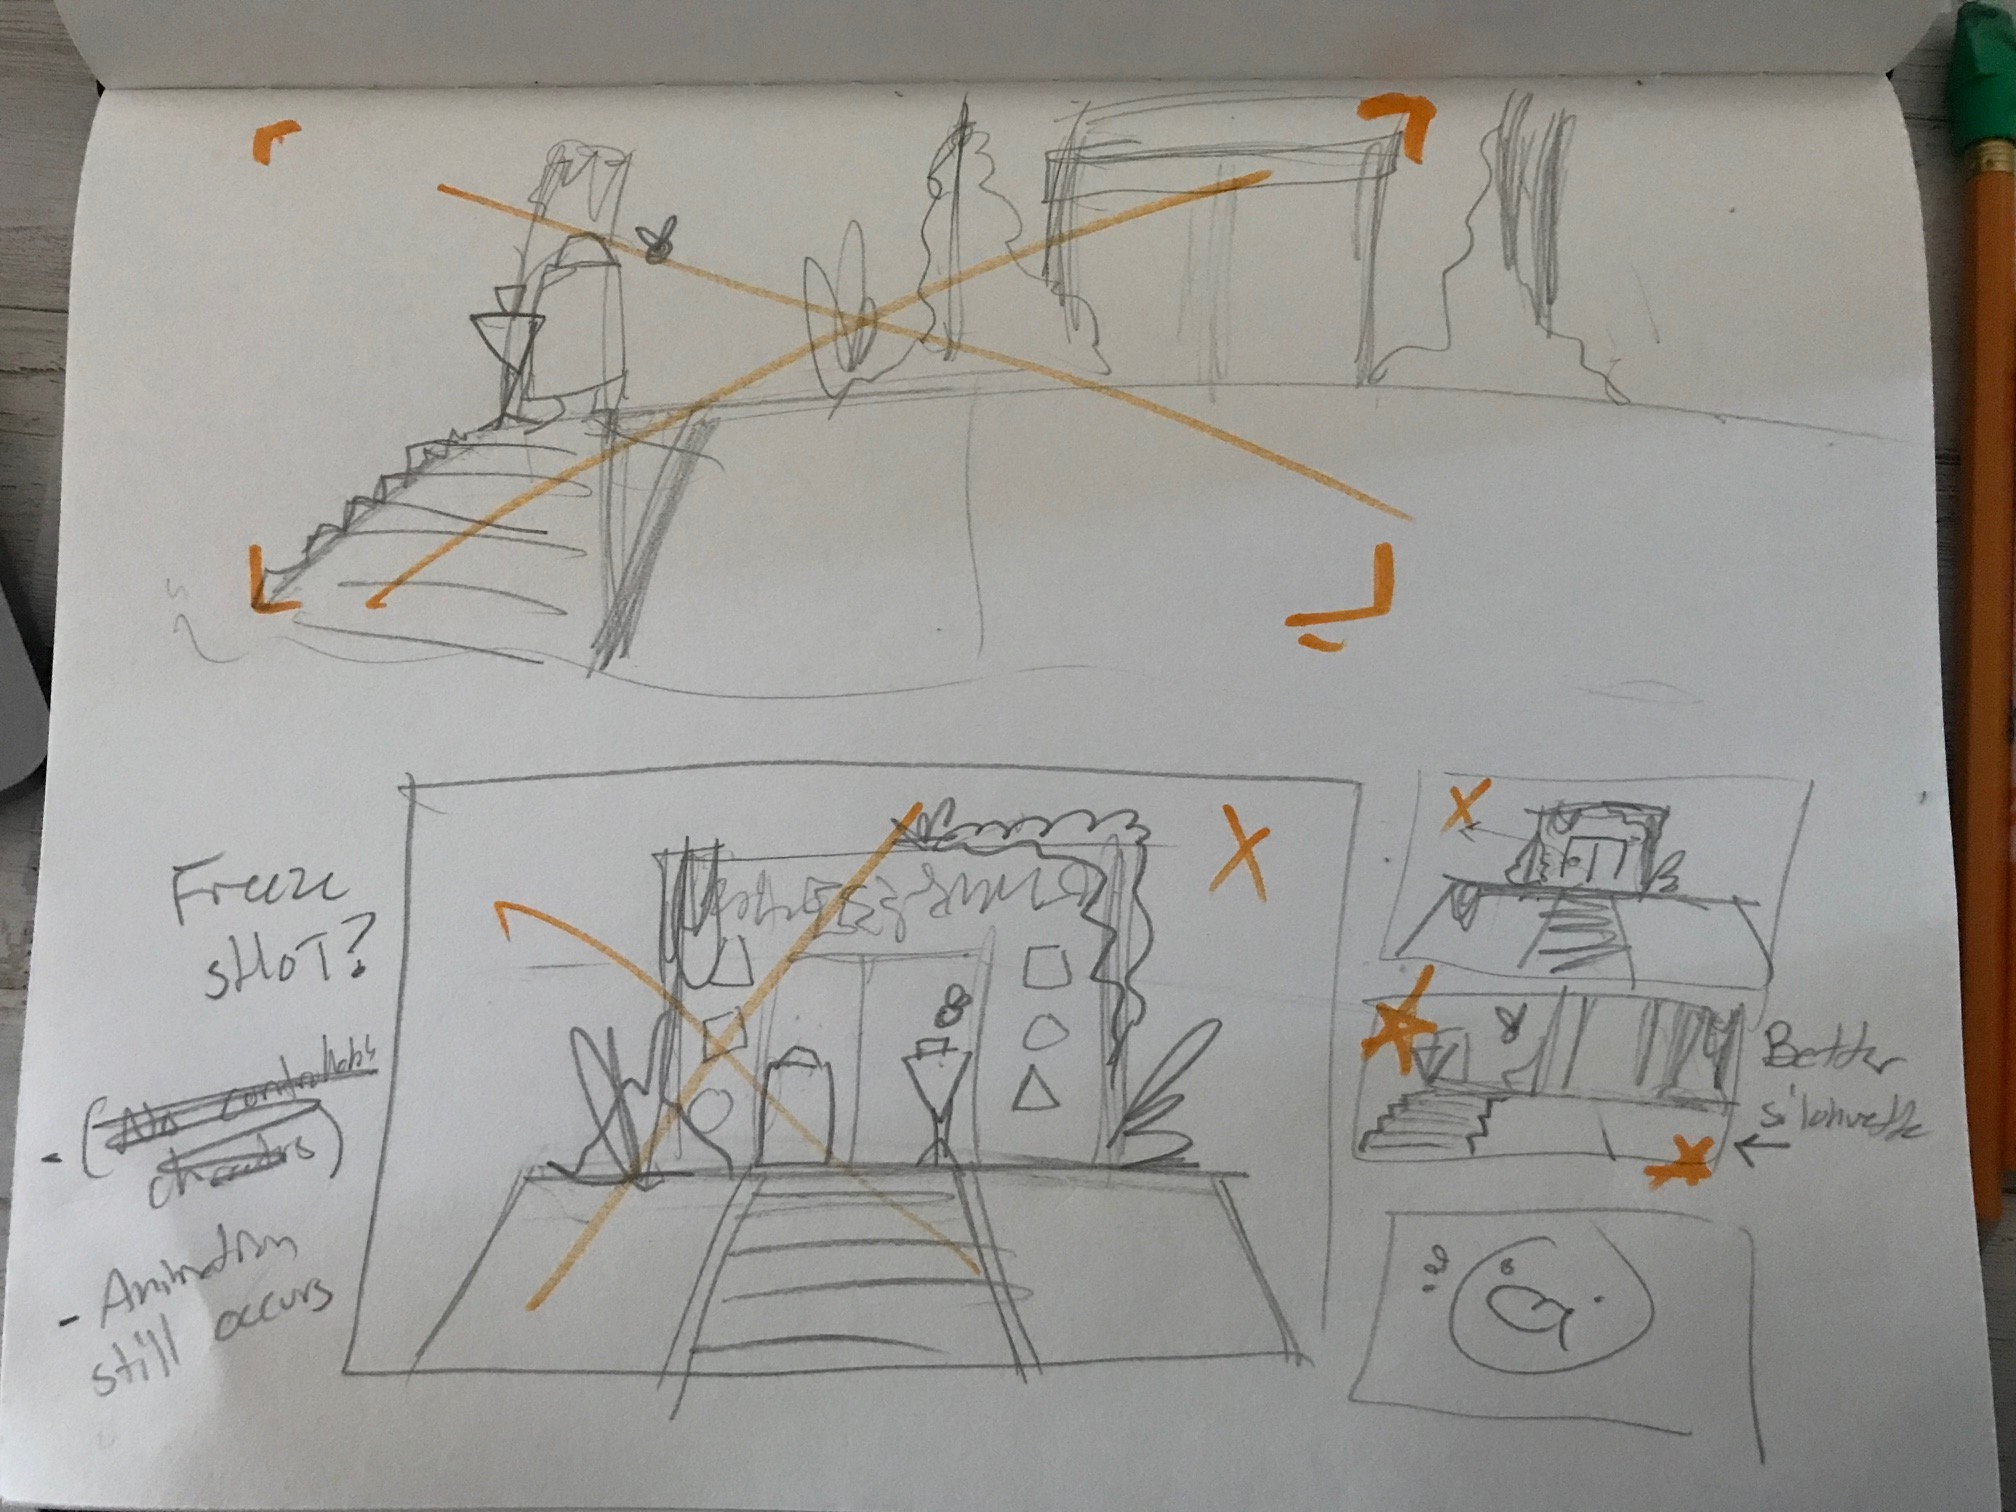 Freeze
SHOT?
- (No controllable
characters)
- Animation
still occurs
Better
silhouette